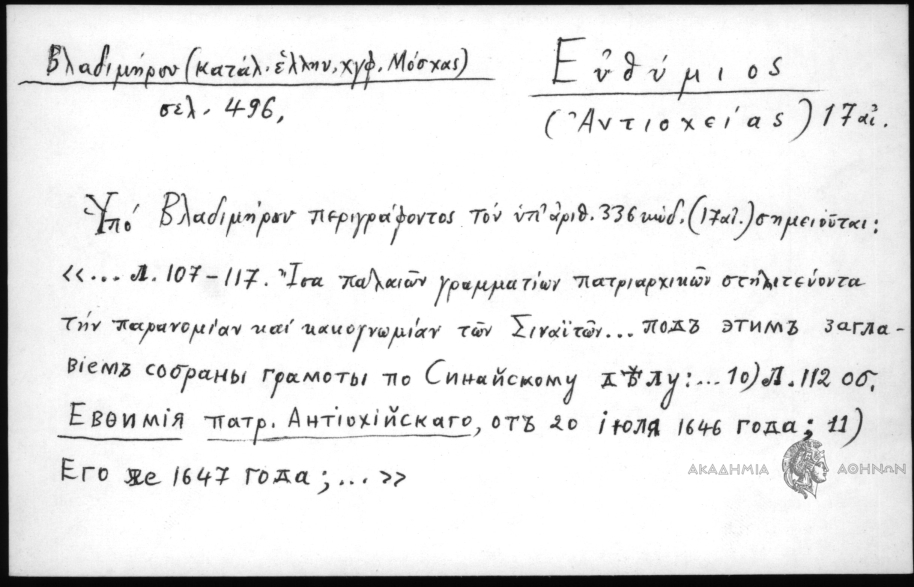 Βλαδιμήρου (κατάλ. ἑλλην. χγφ. Μόσχας)
σελ. 496,
Εὐθύμιος
(Ἀντιοχείας) 17 αἰ.
Ὑπό Βλαδιμήρου περιγράφοντος τόν ὑπ' ἀριθ. 336 κώδ. (17 αἰ.) σημειοῦται:
«... Л. 107-117. Ἴσα παλαιῶν γραμματίων πατριαρχικῶν στηλιτεύοντα
τήν παρανομίαν καί κακογνωμίαν τῶν Σιναϊτῶν... подъ этимъ загла-
віемъ собраны грамоты по Синайскому дѣлу:... 10) Л. 112 об.
Евѳимія патр. Антіохійскаго, отъ 20 іюля 1646 года; 11)
Его же 1647 года;...»
ΑΚΑΔΗΜΙΑ ΑΘΗΝΩΝ